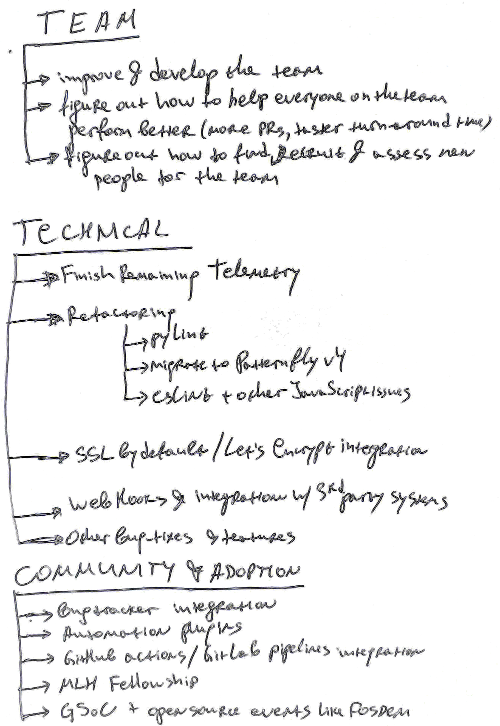 TEAM
improve & develop the team
figure out how to help everyone on the team
perform better (more PRs, faster turn-around time)
figure out how to find, recruit & assess new
people for the team
TECHNICAL
Finish Remaining Telemetry
Refactoring
pylint
migrate to Patternfly v4
eslint + other JavaScript issues
SSL by default / Let's Encrypt integration
WebHooks & integration w/ 3rd party systems
Other bug-fixes & features
COMMUNITY & ADOPTION
Bugtracker integration
Automation plugins
GitHub actions / GitLab pipelines integration
MLH Fellowship
GSoC + open source events like FOSDEM